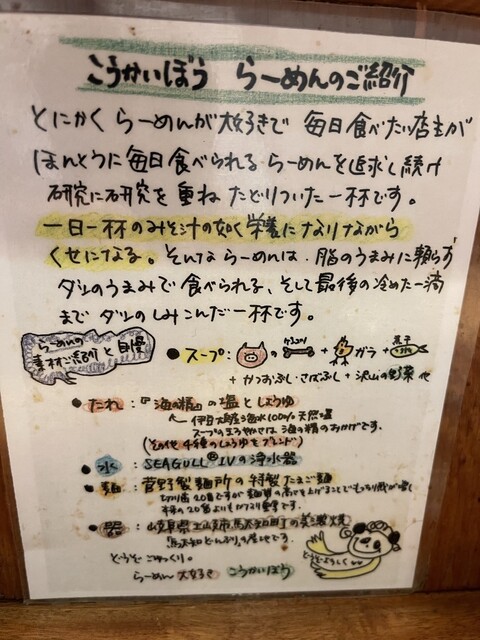 こうかいぼう らーめんのご紹介
とにかく らーめんが大好きで 毎日食べたい店主が
ほんとうに毎日食べられる らーめんを追求し続け
研究に研究を重ね たどりついた一杯です。
一日一杯のみそ汁の如く栄養になりながら
くせになる。そんな らーめんは、脂のうまみに頼らず
ダシのうまみで食べられる、そして最後の冷めた一滴
まで ダシのしみこんだ一杯です。
らーめんの
素材ご紹介と自慢
・スープ: の げんこつ + ガラ + 煮干
+ かつおぶし・さばぶし + 沢山の野菜 他
・たれ:『海の精』の塩としょうゆ
伊豆大島産海水100%天然塩
スープのまろやかさは 海の精のおかげです。
(その他 4種のしょうゆをブレンド)
・水:SEAGULL® IVの浄水器
・麺:菅野製麺所の特製たまご麺
切り歯20番ですが
・器:岐阜県土岐市駄知町の美濃焼
「駄知どんぶり」の産地です。
どうぞごゆっくり。
どうぞよろしく
らーめん大好き こうかいぼう